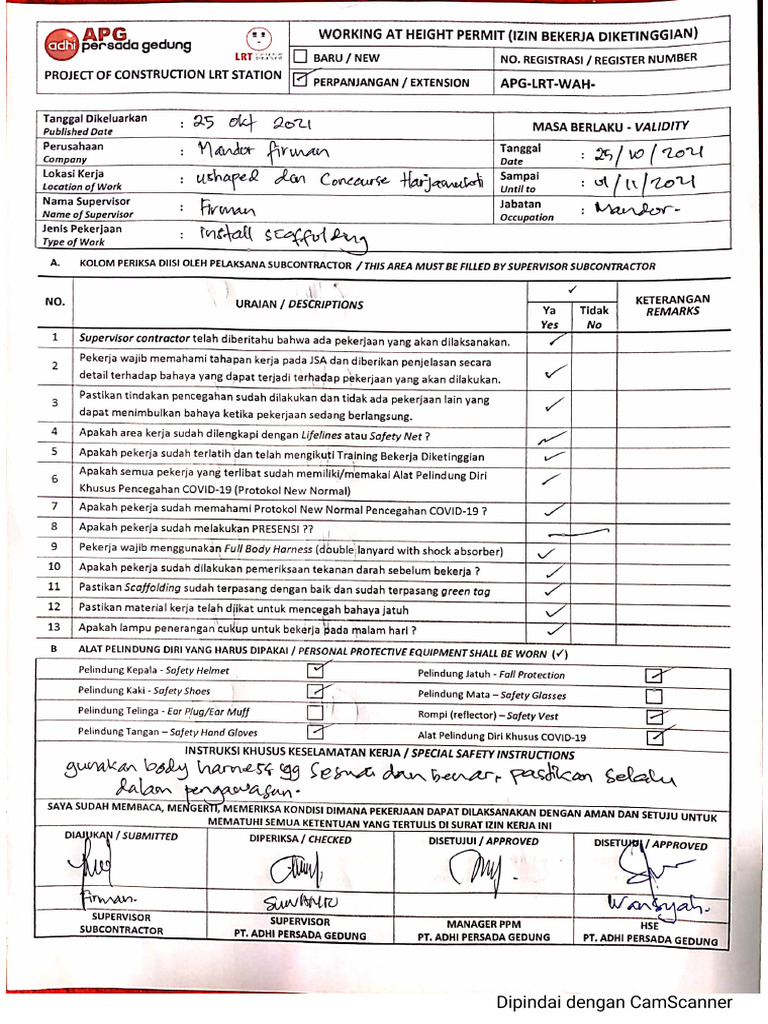 adhi
APG
persada gedung
LRT
PROJECT OF CONSTRUCTION LRT STATION
WORKING AT HEIGHT PERMIT (IZIN BEKERJA DIKETINGGIAN)
BARU / NEW
NO. REGISTRASI / REGISTER NUMBER
✓ PERPANJANGAN / EXTENSION
APG-LRT-WAH-
Tanggal Dikeluarkan : 25 okt 2021
Published Date
MASA BERLAKU - VALIDITY
Perusahaan : Mandor firman
Company
Tanggal : 25/10/2021
Date
Lokasi Kerja : ushaped dan Concourse
Location of Work
Sampai : 01/11/2021
Until to
Nama Supervisor : Firman
Name of Supervisor
Jabatan : Mandor-
Occupation
Jenis Pekerjaan : install scaffolding
Type of Work
A. KOLOM PERIKSA DIISI OLEH PELAKSANA SUBCONTRACTOR / THIS AREA MUST BE FILLED BY SUPERVISOR SUBCONTRACTOR
NO. URAIAN / DESCRIPTIONS ✓ KETERANGAN
REMARKS
Ya Tidak
Yes No
1 Supervisor contractor telah diberitahu bahwa ada pekerjaan yang akan dilaksanakan. ✓
2 Pekerja wajib memahami tahapan kerja pada JSA dan diberikan penjelasan secara
detail terhadap bahaya yang dapat terjadi terhadap pekerjaan yang akan dilakukan. ✓
3 Pastikan tindakan pencegahan sudah dilakukan dan tidak ada pekerjaan lain yang
dapat menimbulkan bahaya ketika pekerjaan sedang berlangsung. ✓
4 Apakah area kerja sudah dilengkapi dengan Lifelines atau Safety Net ? ✓
5 Apakah pekerja sudah terlatih dan telah mengikuti Training Bekerja Diketinggian ✓
6 Apakah semua pekerja yang terlibat sudah memiliki/memakai Alat Pelindung Diri
Khusus Pencegahan COVID-19 (Protokol New Normal) ✓
7 Apakah pekerja sudah memahami Protokol New Normal Pencegahan COVID-19 ? ✓
8 Apakah pekerja sudah melakukan PRESENSI ??
9 Pekerja wajib menggunakan Full Body Harness (double lanyard with shock absorber) ✓
10 Apakah pekerja sudah dilakukan pemeriksaan tekanan darah sebelum bekerja ? ✓
11 Pastikan Scaffolding sudah terpasang dengan baik dan sudah terpasang green tag ✓
12 Pastikan material kerja telah diikat untuk mencegah bahaya jatuh ✓
13 Apakah lampu penerangan cukup untuk bekerja pada malam hari ? ✓
B ALAT PELINDUNG DIRI YANG HARUS DIPAKAI / PERSONAL PROTECTIVE EQUIPMENT SHALL BE WORN (✓)
Pelindung Kepala - Safety Helmet ✓
Pelindung Jatuh - Fall Protection ✓
Pelindung Kaki - Safety Shoes ✓
Pelindung Mata – Safety Glasses
Pelindung Telinga - Ear Plug/Ear Muff
Rompi (reflector) – Safety Vest ✓
Pelindung Tangan – Safety Hand Gloves ✓
Alat Pelindung Diri Khusus COVID-19 ✓
INSTRUKSI KHUSUS KESELAMATAN KERJA / SPECIAL SAFETY INSTRUCTIONS
gunakan body harness yg sesuai dan benar, pastikan selalu
dalam pengawasan.
SAYA SUDAH MEMBACA, MENGERTI, MEMERIKSA KONDISI DIMANA PEKERJAAN DAPAT DILAKSANAKAN DENGAN AMAN DAN SETUJU UNTUK
MEMATUHI SEMUA KETENTUAN YANG TERTULIS DI SURAT IZIN KERJA INI
DIAJUKAN / SUBMITTED
DIPERIKSA / CHECKED
DISETUJUI / APPROVED
DISETUJUI / APPROVED
Firman.
SUWANTO
Wansyah.
SUPERVISOR
SUBCONTRACTOR
SUPERVISOR
PT. ADHI PERSADA GEDUNG
MANAGER PPM
PT. ADHI PERSADA GEDUNG
HSE
PT. ADHI PERSADA GEDUNG
Dipindai dengan CamScanner